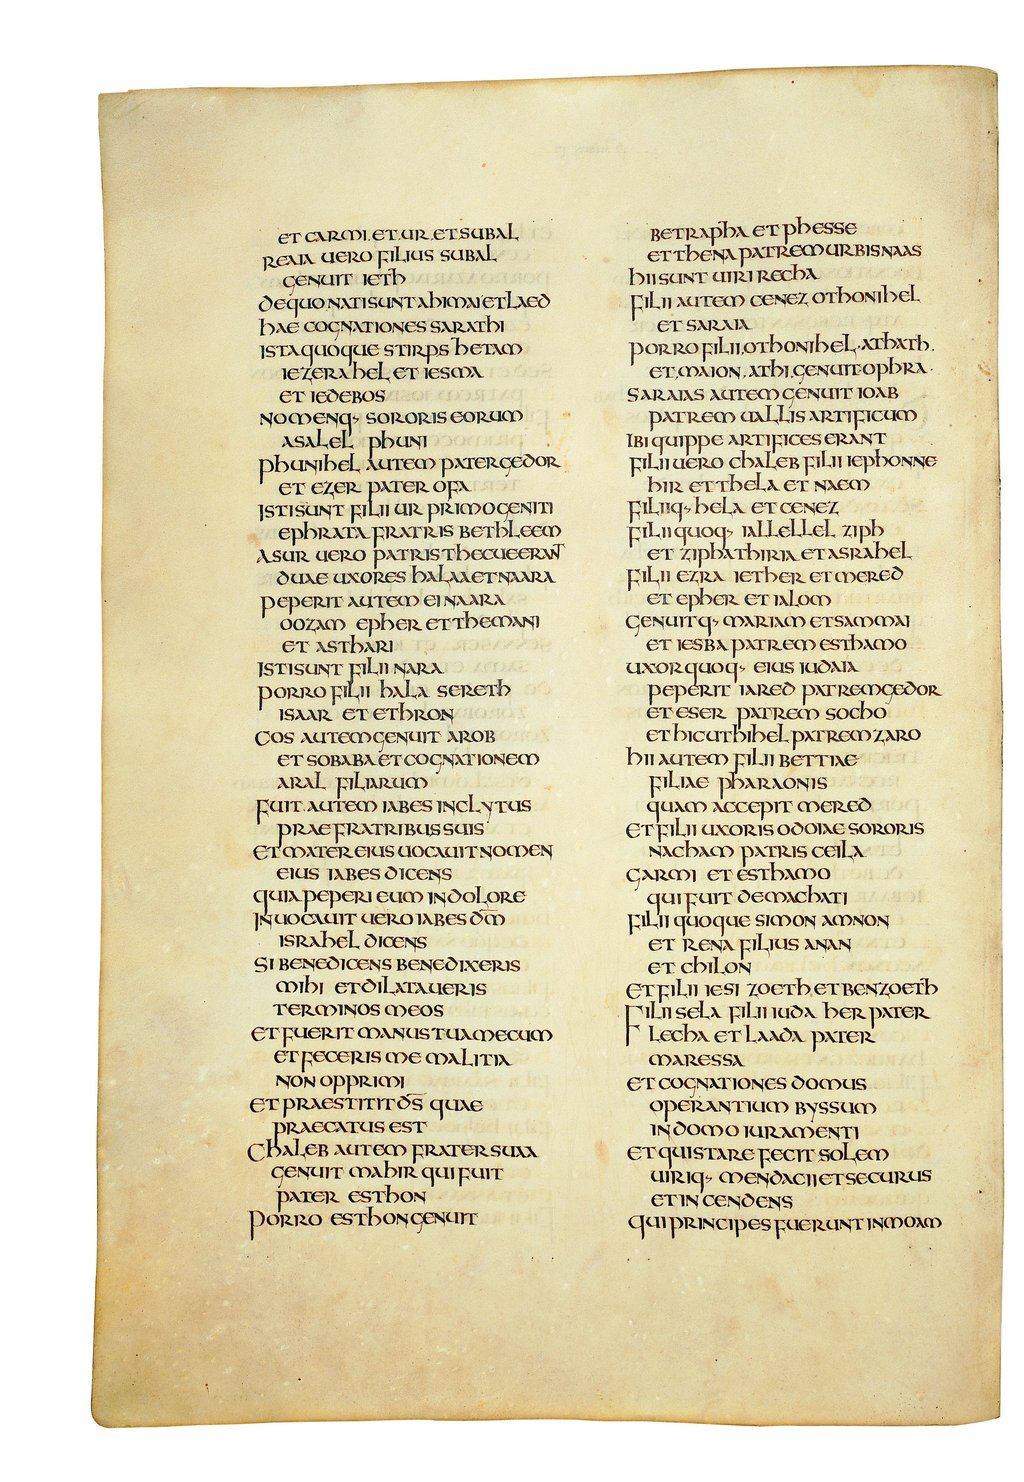 ET CARMI. ET UR. ET SUBAL
REAIA UERO FILIUS SUBAL
GENUIT IETH
DE QUO NATI SUNT AHIMAI ET LAED
HAE COGNATIONES SARATHI
ISTA QUOQUE STIRPS HETAM
IEZERAHEL ET IESMA
ET IEDEBOS
NOMENQ· SORORIS EORUM
ASALEL PHUNI
PHUNIHEL AUTEM PATER GEDOR
ET EZER PATER OFA
ISTI SUNT FILII UR PRIMOGENITI
EPHRATA FRATRIS BETHLEEM
ASUR UERO PATRIS THECUE ERAÑT
DUAE UXORES HALAA ET NAARA
PEPERIT AUTEM EI NAARA
OOZAM EPHER ET THEMANI
ET ASTHARI
ISTI SUNT FILII NARA
PORRO FILII HALA SERETH
ISAAR ET ETHRON
COS AUTEM GENUIT AROB
ET SOBABA ET COGNATIONEM
ARAL FILIARUM
FUIT. AUTEM IABES INCLYTUS
PRAE FRATRIBUS SUIS
ET MATER EIUS UOCAUIT NOMEN
EIUS IABES DICENS
QUIA PEPERI EUM IN DOLORE
INUOCAUIT UERO IABES D̅M̅
ISRAHEL DICENS
SI BENEDICENS BENEDIXERIS
MIHI ET DILATAUERIS
TERMINOS MEOS
ET FUERIT MANUS TUA MECUM
ET FECERIS ME MALITIA
NON OPPRIMI
ET PRAESTITIT D̅S̅ QUAE
PRAECATUS EST
CHALEB AUTEM FRATER SUAA
GENUIT MAHIR QUI FUIT
PATER ESTHON
PORRO ESTHON GENUIT
BETRAPHA ET PHESSE
ET THENA PATREM URBIS NAAS
HII SUNT UIRI RECHA
FILII AUTEM CENEZ OTHONIHEL
ET SARAIA
PORRO FILII. OTHONIHEL · ATHATH.
ET. MAION. ATHI. GENUIT· OPHRA·
SARAIAS AUTEM GENUIT IOAB
PATREM UALLIS ARTIFICUM
IBI QUIPPE ARTIFICES ERANT
FILII UERO CHALEB FILII IEPHONNE
HIR ET THELA ET NAEM
FILIIQ· HELA ET CENEZ
FILII QUOQ· IALLELLEL ZIPH
ET ZIPHA THIRIA ET ASRAHEL
FILII EZRA IETHER ET MERED
ET EPHER ET IALOM
GENUITQ· MARIAM ET SAMMAI
ET IESBA PATREM ESTHAMO
UXOR QUOQ· EIUS IUDAIA
PEPERIT IARED PATREM GEDOR
ET ESER PATREM SOCHO
ET HICUTHIHEL PATREM ZARO
HII AUTEM FILII BETTIAE
FILIAE PHARAONIS
QUAM ACCEPIT MERED
ET FILII UXORIS ODOIAE SORORIS
NACHAM PATRIS CEILA
GARMI ET ESTHAMO
QUI FUIT DE MACHATI
FILII QUOQUE SIMON AMNON
ET RENA FILIUS ANAN
ET CHILON
ET FILII IESI ZOETH. ET BENZOETH
FILII SELA FILII IUDA HER PATER
LECHA ET LAADA PATER
MARESSA
ET COGNATIONES DOMUS
OPERANTIUM BYSSUM
IN DOMO IURAMENTI
ET QUI STARE FECIT SOLEM
UIRIQ· MENDACII ET SECURUS
ET INCENDENS
QUI PRINCIPES FUERUNT IN MOAM